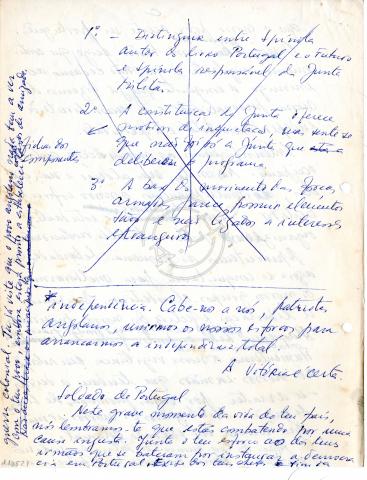 1º - Distinguir entre Spínola
autor do livro Portugal e o Futuro
e Spínola responsável da Junta
Militar.
2º - A constituição da Junta oferece
motivos de inquietação, mas sente-se
que mais
deliberou o programa.
componentes
3º - A base do movimento das forças
armadas parece possuir elementos
e não ligados a interesses
estrangeiros
* independência. Cabe-nos a nós, patriotas
angolanos, unirmos os nossos esforços para
arrancarmos a independência total.
A Vitória é certa.
Soldado de Portugal
Neste grave momento da vida do teu país,
nós lembramos-te que estás combatendo por uma
causa injusta. Junta o teu esforço ao dos teus
irmãos que se bateram por instaurar a democra
cia em Portugal
guerra colonial. Tu já viste que o povo angolano nada tem a ver
com o teu povo, embora esteja pronto a estabelecer laços de amizade.